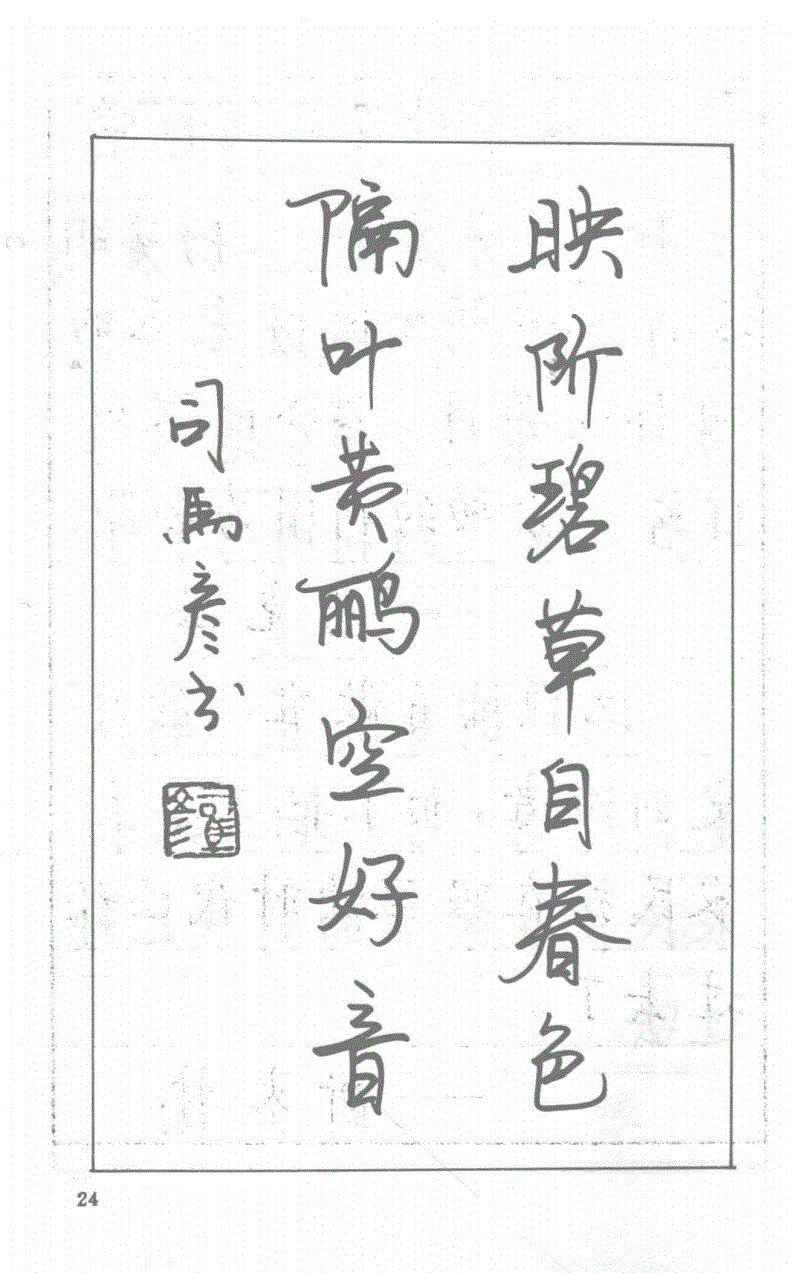 映阶碧草自春色
隔叶黄鹂空好音
司馬彦书
24